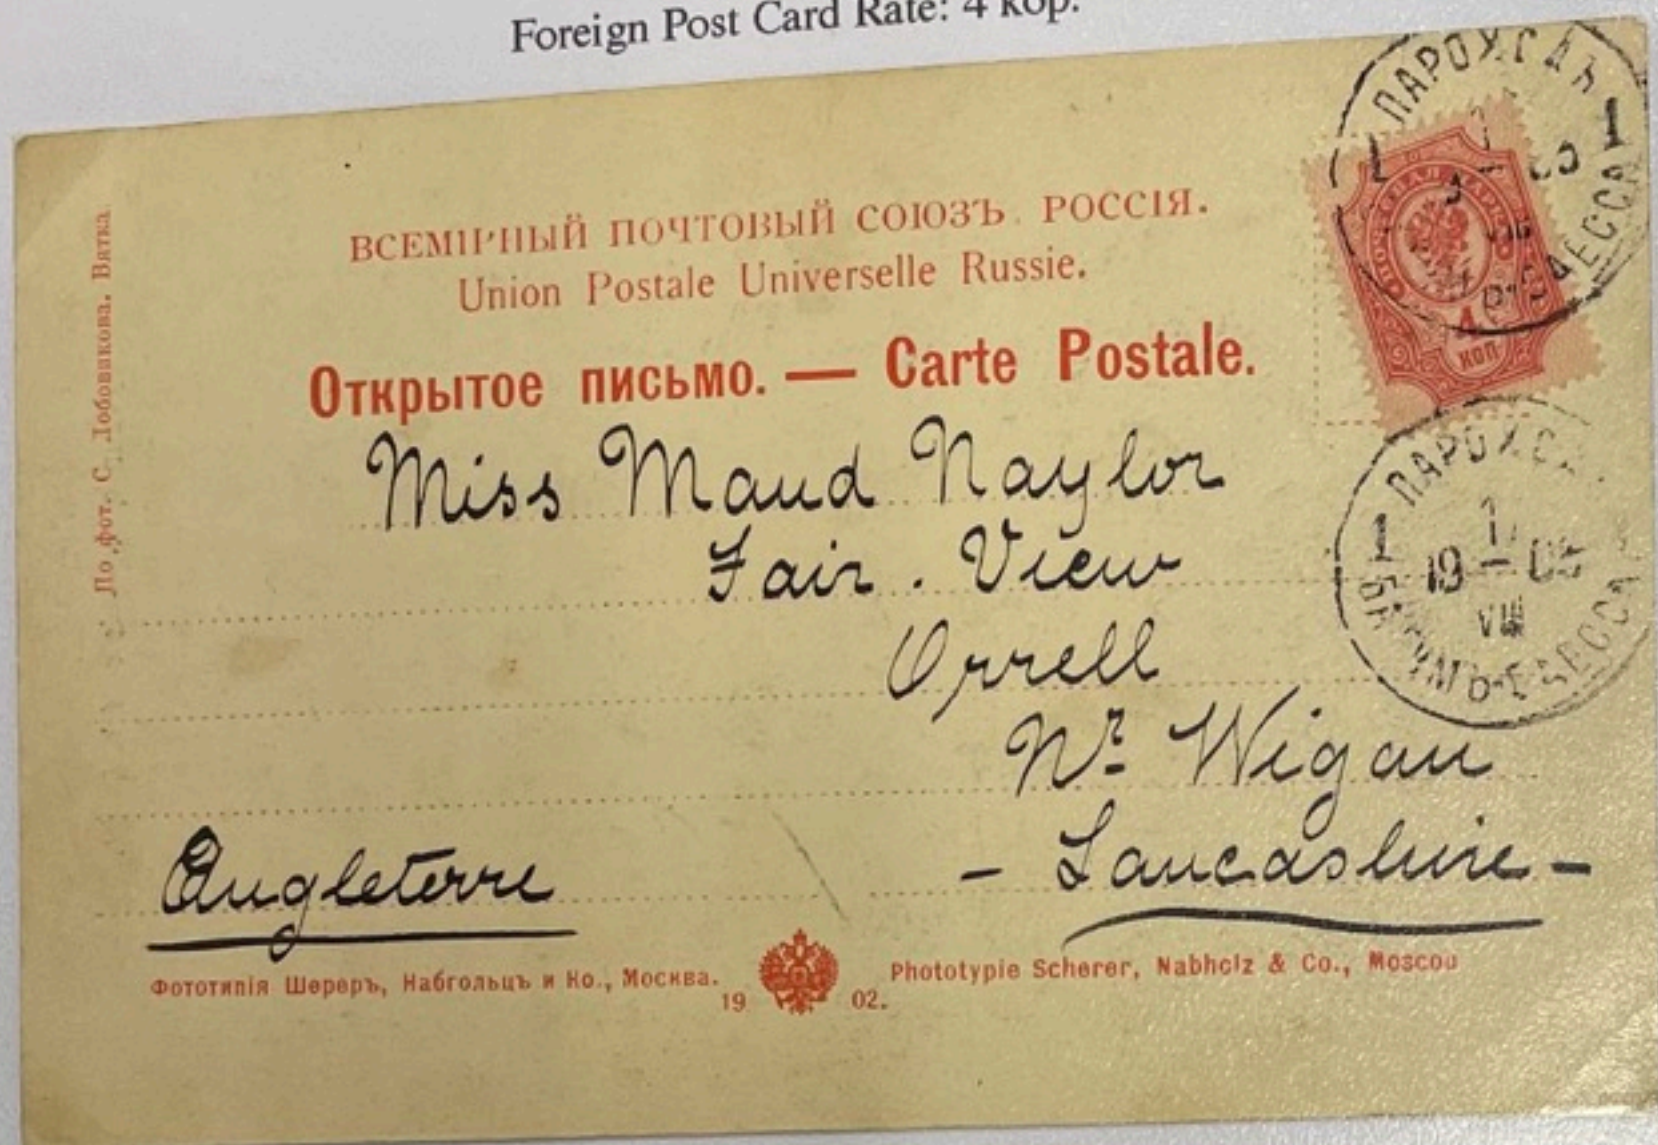 Foreign Post Card Rate: 4 kop.
ВСЕМІРНЫЙ ПОЧТОВЫЙ СОЮЗЪ. РОССІЯ.
Union Postale Universelle Russie.
Открытое письмо. — Carte Postale.
Miss Maud Naylor
Fair. View
Orrell
Nr Wigan
- Lancashire -
Angleterre
Фототипія Шереръ, Набгольцъ и Ко., Москва.
19 02.
Phototypie Scherer, Nabholz & Co., Moscou
По фот. С. Лобовикова. Вятка
ПАРОХ
1 1
ОДЕССА
4
КОП
ПАРОХ
1
1
19 - 05
VIII
ОДЕССА